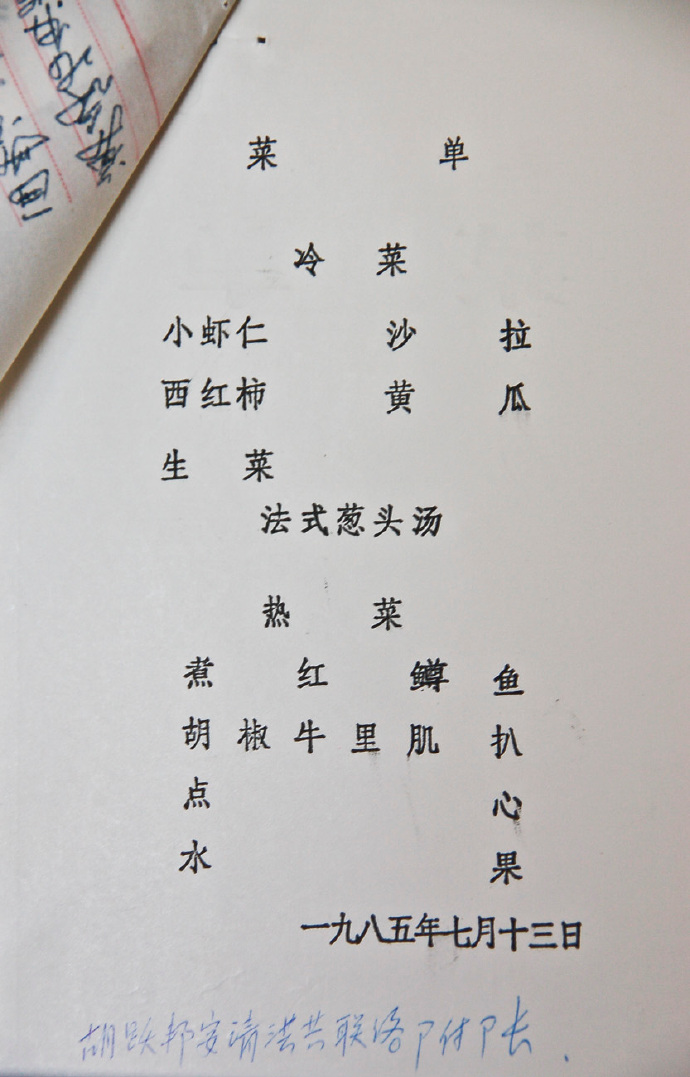 菜 单
冷 菜
小虾仁 沙 拉
西红柿 黄 瓜
生 菜
法式葱头汤
热 菜
煮 红 鳟 鱼
胡 椒 牛 里 肌 扒
点 心
水 果
一九八五年七月十三日
胡跃邦宴请法共联络卩付卩长.